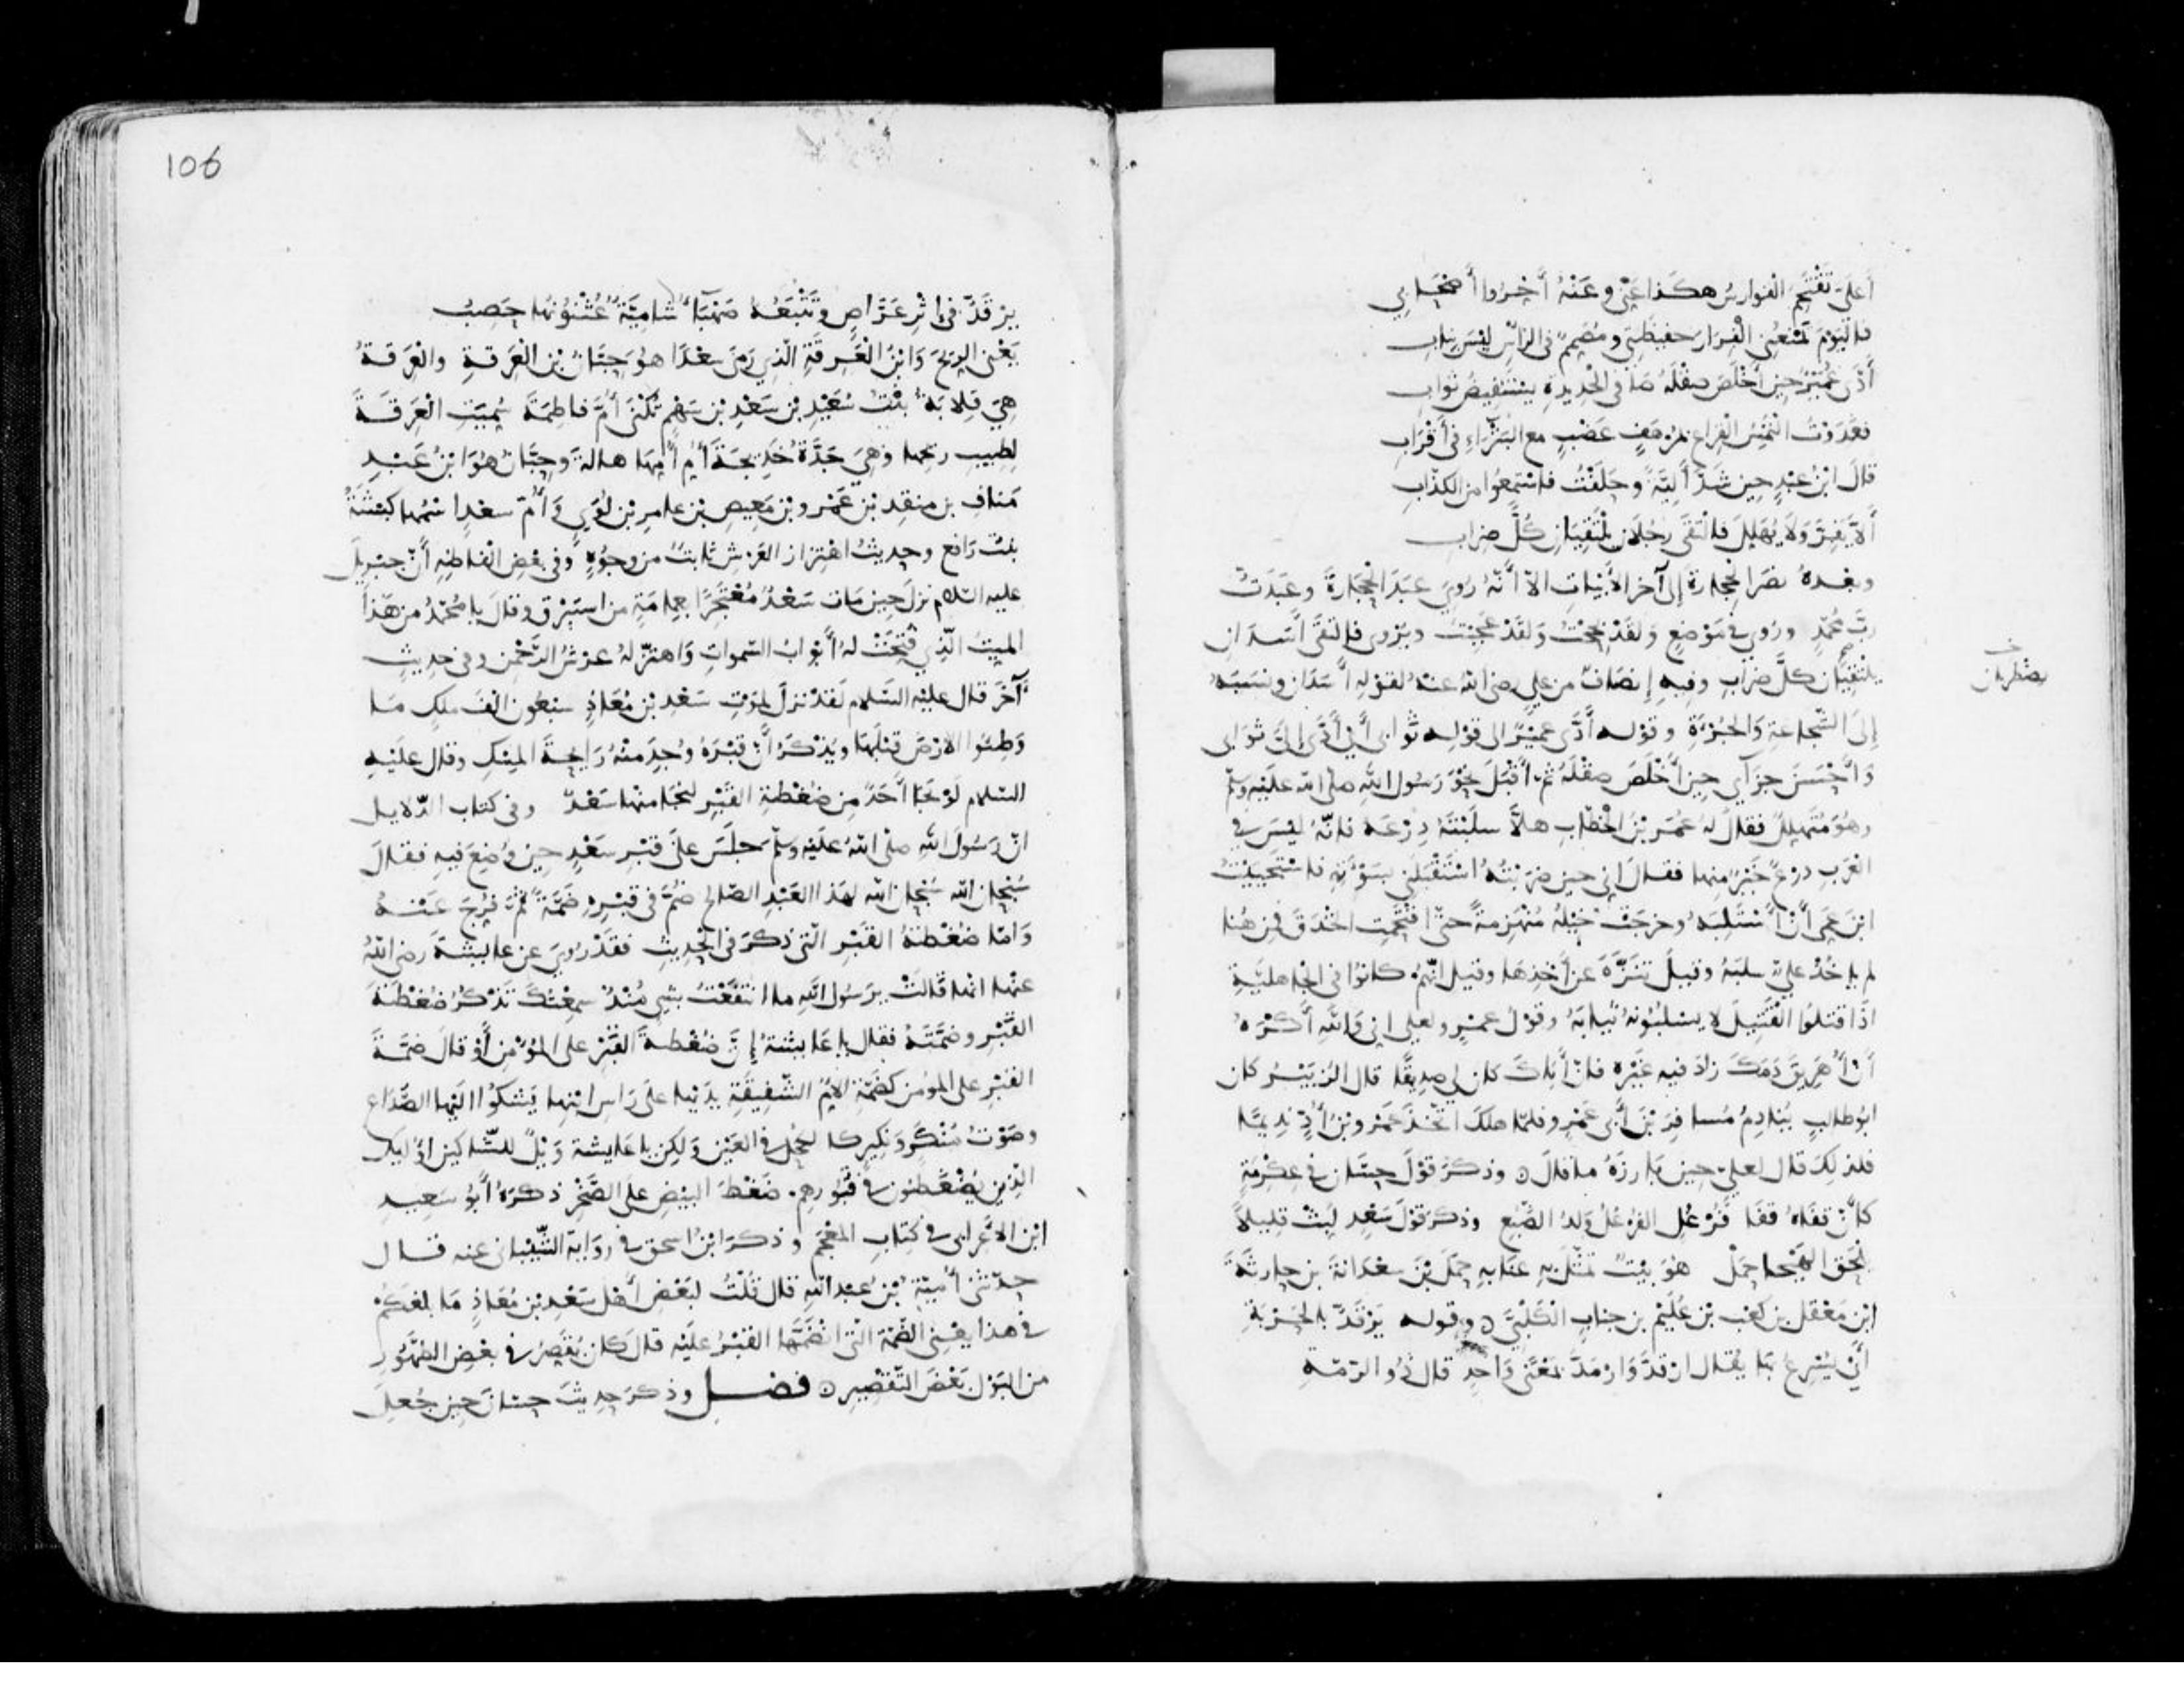 أَعَلَيَّ تَقْتَحِمُ الفوارِسُ هكَذا عَنِّي وعَنْهُ أَخِّرُوا أَصْحَابِي
فاليَوْمَ تَمْنَعُنِي الْفِرَارَ حفيظَتِي ومُصَمِّمٌ في الرَّأسِ ليْسَ بنابِ
أَدَّى عُمَيْرٌ حِينَ أَخْلَصَ صقْلَهُ صَافي الحْدِيدةِ يستَفِيضُ ثَوابِ
فغَدَوْتُ أَلْتَمِسُ الْقِراعَ بمُرْهَفٍ عَضْبٍ مع البَتْرَاءِ في أَقْرَابِ
قالَ ابْنُ عبْدٍ حِين شَدَّ أَلِيَّةً وحَلَفْتُ فاسْتَمِعُوا من الكذّابِ
أَلَّا يَفِرَّ وَلَا يُهَلِّلَ فالْتَقَى رجُلَانِ يَلْتَقِيَانِ كُلَّ ضِرابِ
وبعْدهُ نصَرَ الْحِجَارةَ إلى آخر الأَبْيَاتِ الّا أَنَّهُ رُوِيَ عبَدَ الْحِجَارةَ وعَبَدتُ
ربَّ محُمّدٍ ورُوي في مَوْضعٍ وَلقَدْ بحِحْتُ وَلقَدْ عَجِبْتُ ويُرْوى فالتَقَى أَسَدَانِ
يلْتَقِيَانِ كلَّ ضِرَابٍ وفيهِ إنصَافٌ من عليّ رضي الله عنهُ لقوْلِهِ أَسَدَان ونسَبَهُ
يضطربان
إلى الشَّجاعةِ وَالجُرْءَةِ وقوْله أَدَّى عمَيْرٌ الى قوْلِه ثَوابي أي أدّى إليَّ ثوابي
وَأَحْسَنَ جزآي حِينَ أَخْلَصَ صقْلَهُ ثمّ أَقْبَلَ نحْوَ رَسُول اللهِ صلى الله عليْه وسلم
وهُوَ مُتَهلِّلٌ فقالَ لهُ عُمَر بْنُ الخْطّابِ هلَّا سلَبْتَهُ دِرْعَه فانّهُ ليْسَ في
الْعَرَبِ درْعٌ خَيْرٌ منها فقال اني حين ضرَبْتُهُ اسْتَقْبَلَنِي بسَوْءَتِهِ فاسْتَحْيَيْتُ
ابْنَ عَمِّي أَنْ أَسْتَلِبَهُ وخرجَتْ خيْلُهُ مُنْهَزِمةً حتّى اقْتَحَمتِ الخنْدقَ فمِنْ هُنا
لم يأخُذْ عليّ سلبَهُ وقيلَ تنَزَّهَ عن أَخْذِهَا وقيل انّهُمْ كانُوا في الجْاهليَّةِ
اذَا قتلُوا الْقَتِيلَ لا يسْلبُونهُ ثيابَهُ وقوْلُ عمْرٍو لعلي اني وَاللهِ أَكْرَهُ
أَنْ أُهَرِيقَ دَمَكَ زادَ فيه غَيْرُه فانّ أَبَاكَ كان لي صدِيقًا قال الزُّبَيْرُ كان
ابُو طالبٍ يُنَادِمُ مُسافِرَ بْنَ أَبِي عَمْرٍو فلمّا هلَكَ اتّخذَ عَمْرَو بْنَ أُدٍّ نَدِيمًا
فلذلِكَ قالَ لعليّ حِين بَارزَهُ ما قالَ ۝ وذكَرَ قوْلَ حسَّان في عكْرمَةَ
كأنّ قفَاهُ قفَا فُرْعُلِ الفُرْعُلُ وَلدُ الضَّبُعِ وذكَرَ قوْلَ سعْدٍ لبِّثْ قلِيلًا
يلْحَق الهيْجا حَمَلْ هُو بيْتٌ تمثَّلَ بهِ عنَا بهِ حمَلَ بْنَ سعْدَانةَ بنِ حارثَةَ
ابْن مَعْقل بن كعْب بْن عُلَيْم بن جنابٍ الْكَلْبيَّ ۝ وقوله يَرْقَدُّ بالحَرْبَةِ
أَيْ يُسْرِعُ بهَا يُقالُ ارْقدَّ وَارْمَدَّ بمَعْنًى وَاحِدٍ قال ذُو الرّمّةِ
106
يرْقَدُّ في إثْرِ عَرَّاصٍ وتَتْبَعُهُ صَهْبَاءُ شَامِيَّةٌ عُثْنُونُهَا حَصِبُ
يَعْني الرِيحَ وَابْنُ الْعَرِقَةِ الّذِي رَمَى سعْدًا هُو حِبَّانُ بْن العَرِقةِ والْعَرِقَةُ
هِيَ قِلابَةُ بنْتُ سُعَيْدِ بْن سَعْدِ بْن سَهْمٍ تُكْنَى أُمَّ فاطِمَةَ سُمِّيَتِ الْعَرِقَةَ
لطِيبِ ريحها وهيَ جَدَّةُ خَدِيجَةَ أُمُّ أُمِّهَا هالةَ وحِبَّانُ هُوَ ابْنُ عَبْدِ
مَنافِ بن منقِذِ بْن عَمْرِو بْن مَعِيصِ بْن عامرِ بْن لُؤَيٍ وَأُمُّ سعْدٍ اسمُها كبْشَةُ
بنْتُ رَافعٍ وحدِيثُ اهْتِزازِ العَرْشِ ثابتٌ من وجُوهٍ وفي بعْضِ الْفاظِهِ أَنّ جبْرِيلَ
عليه السّلام نزلَ حِين مات سَعْدٌ مُعْتَجرًا بعِمامَةٍ من استَبْرَق وقالَ يا محُمّدُ من هَذا
الميتُ الّذِي فُتِحَتْ لهُ أَبْوابُ السّمواتِ وَاهتزّ لهُ عرْشُ الرّحْمن وفي حدِيثٍ
آخَرَ قال عليْه السَّلام لَقدْ نزلَ لمَوْتِ سَعْدِ بْن مُعَاذٍ سبْعُون الْفَ ملَكٍ مَا
وَطِئُوا الارْضَ قبْلَهَا ويُذْكَرُ أَنّ قبْرَهُ وُجِدَ منْهُ رَايحةُ المِسْكِ وقال عليْه
السلام لَوْ نجَا أَحَدٌ مِن ضُغْطةِ القَبْرِ لنجَا منْها سَعْدٌ وفي كتاب الدّلايل
انّ رسُولَ اللهِ صلّى اللهُ عليْه وسلّم جلَسَ علَى قبْرِ سَعْدٍ حِين وُضِعَ فيهِ فقالَ
سُبْحان الله سُبْحان الله لهذَا العَبْدِ الصّالح ضُمَّ في قبْرِهِ ضَمّةً ثمّ فُرِجَ عنْهُ
وَامّا ضُغْطةُ القَبْرِ الّتي ذكرَ في الحْدِيثِ فقَدْ رُوِيَ عن عايشةَ رضي اللهُ
عنْها انها قَالَتْ يرَسُولَ اللهِ ما انتفَعْتُ بشيءٍ مُنْذُ سمِعْتُكَ تَذْكُرُ ضُغْطةَ
القَبْرِ وضَمَّتَهُ فقال يا عَايشةُ إنَّ ضُغْطةَ القَبْرِ على المؤْمن أَوْ قالَ ضمّةَ
القبْرِ على المؤمن كضَمّةِ الأمّ الشَّفِيقَةِ يدَيْها علَى رَاسِ ابْنِها يَشْكُوا اليْها الصُّدَاع
وصَوْتُ مُنْكَرٍ وَنكِيرٍ كالكُحْلِ في العَيْن وَلكِن يا عَايشة وَيْلٌ للشّاكين اوليك
الّذِين يُضْغطون في قبُورهم ضَغْطَ البيْض على الصّخْرِ ذكرَهُ أَبُو سَعِيدِ
ابْن الاعْرابي في كتابِ المعْجَم وذكرَ ابْنُ اسحق في روَايةِ الشّيْبانيّ عنه قال
حدّثني أُميّةُ بْن عبْداللهِ قال قُلْتُ لبَعْض أَهْل سَعْدِ بْن مُعَاذٍ مَا بلغكمْ
في هذا يعْني الضّمّةَ الّتي انضَمّها القبْرُ عليْه قال كان يُقصّرُ في بعْضِ الطّهُورِ
من البَوْلِ بَعْضَ التّقْصِير ۝ فصل وذكرَ حدِيثَ حسّان حِين جُعِلَ